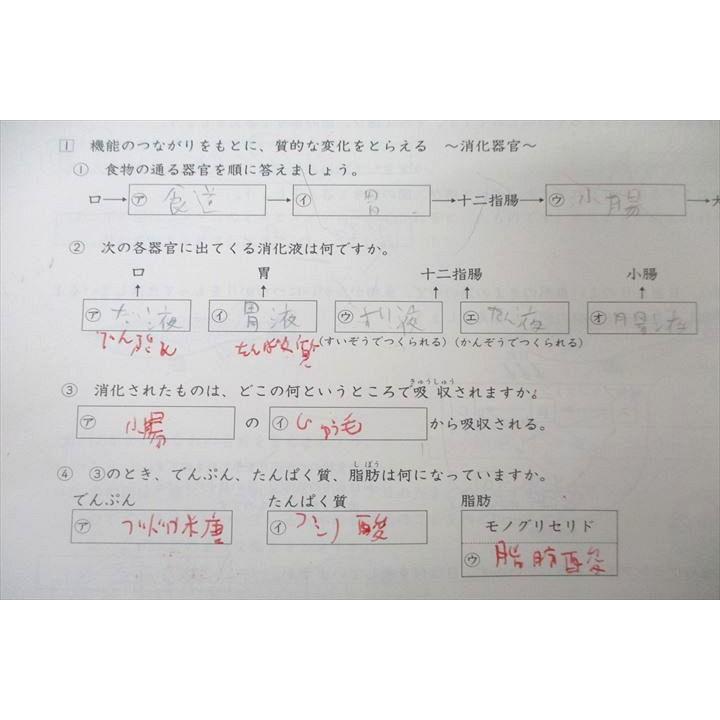 1 機能のつながりをもとに、質的な変化をとらえる ～消化器官～
① 食物の通る器官を順に答えましょう。
口→㋐ 食道 →㋑ 胃 →十二指腸→㋒ 小腸 →大
② 次の各器官に出てくる消化液は何ですか。
口 胃 十二指腸 小腸
㋐ だ液 ㋑ 胃液 ㋒ すい液 ㋓ たん液 ㋔ 腸液
でんぷん たんぱく質 (すいぞうでつくられる) (かんぞうでつくられる)
きゅうしゅう
③ 消化されたものは、どこの何というところで吸収されますか。
㋐ 小腸 の ㋑ じゅう毛 から吸収される。
しぼう
④ ③のとき、でんぷん、たんぱく質、脂肪は何になっていますか。
でんぷん たんぱく質 脂肪
㋐ ブドウ糖 ㋑ アミノ酸 モノグリセリド
㋒ 脂肪酸